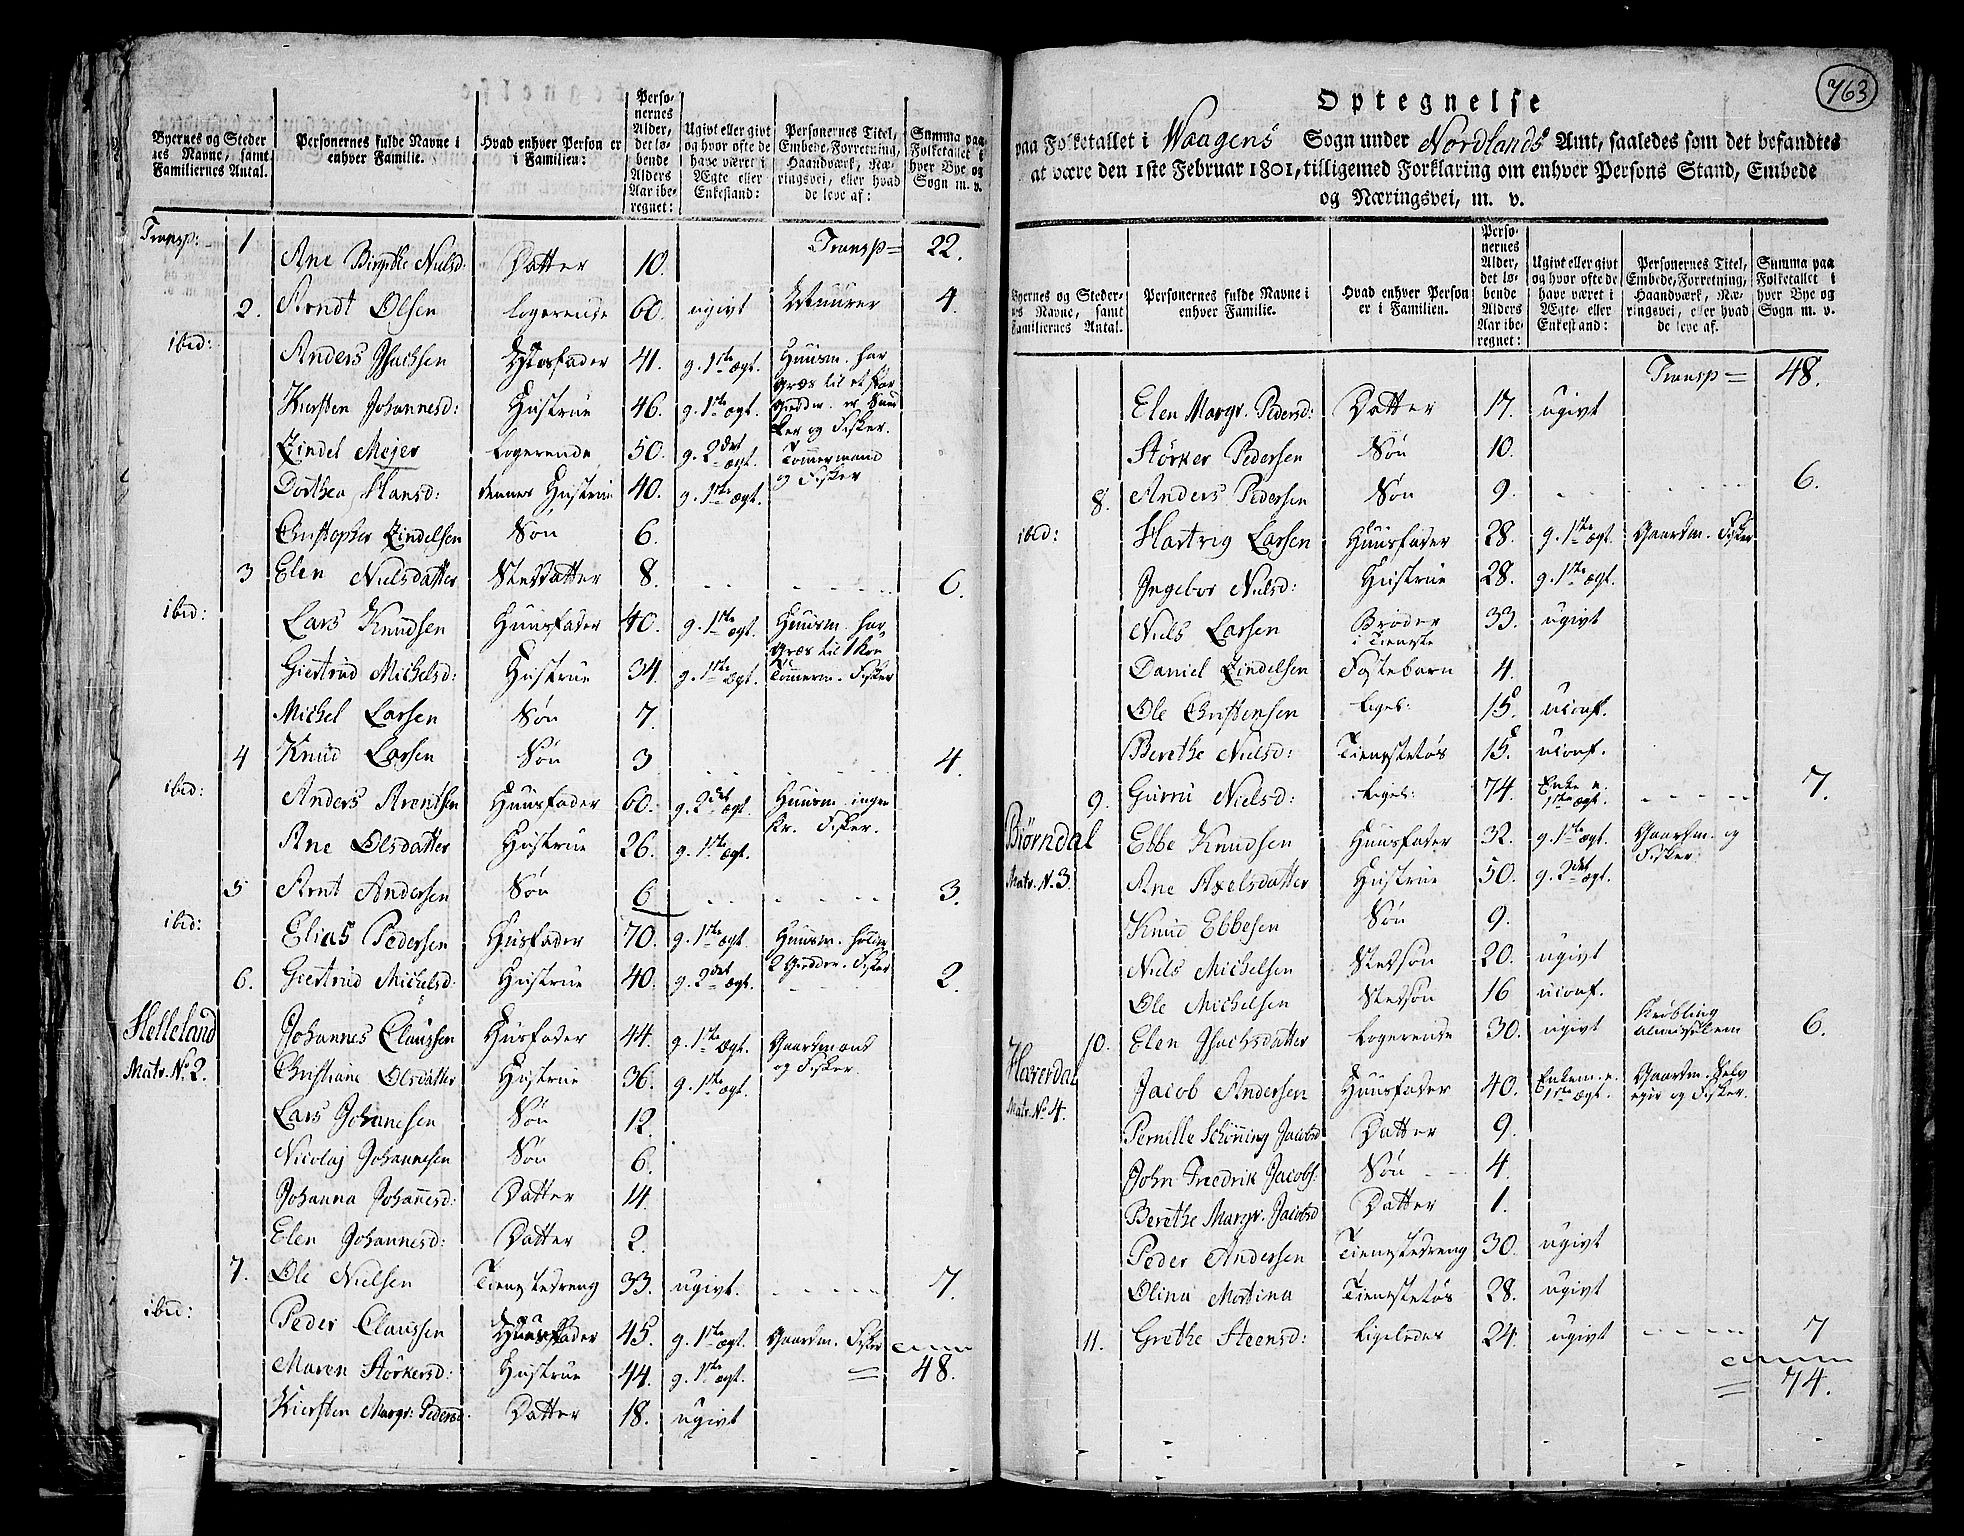 Byernes og Steder
nes Navne, samt
Familiernes Antal.
Personernes fulde Navne i
enhver Familie.
Hvad enhver Person er
i Familien:
Perso-
nernes
Alder,
det lø-
bende
Alders
Aar ibe-
regnet:
Ugivt eller givt
og hvor ofte de
have været i
Ægte eller
Enkestand:
Personernes Titel,
Embede, Forretning,
Haandværk, Næ-
ringsvei, eller hvad
de leve af:
Summa paa
Folketallet i
hver Bye og
Sogn m. v.
Transp: 1 Transp= 22.
Ane Birgitte Nielsd: Datter 10.
2. Arndt Olsen Logerende 60. ugivt Muurer 4.
ibid:
Anders Isachsen Huusfader 41. g. 1ste ægt. Huusm. har
Græs til et Par
Kiersten Johannesd: Hustrue 46. g. 1ste ægt. Giedder. er Snid
ker og Fisker.
Zindel Mejer Logerende 50. g. 2det ægt. Tømmermand
og Fisker
Dorthea Hansd: dennes Hustrue 40. g. 1ste ægt.
Christopher Zindelsen Søn 6.
3 Elen Nielsdatter Steddatter 8. 6.
ibid:
Lars Knudsen Huusfader 40. g. 1ste ægt. Huusm. har
Græs til 1 Koe
Giertrud Michelsd: Hustrue 34. g. 1ste ægt. Tømmerm. Fisker
Michel Larsen Søn 7.
4 Knud Larsen Søn 3 4.
ibid:
Anders Arentsen Huusfader 60. g. 2det ægt. Huusm. ingen
Kr. Fisker.
Ane Olsdatter Hustrue 26. g. 1ste ægt.
5 Arnt Andersen Søn 6 3.
ibid:
Elias Pedersen Husfader 70. g. 1ste ægt. Huusm. holder
2 Giedder. Fisker
6. Giertrud Michelsd: Hustrue 40. g. 2det ægt. 2.
Helleland
Johannes Claussen Husfader 44. g. 1ste ægt. Gaardmand
og Fisker.
Matr. No 2.
Christiane Olsdatter Hustrue 36. g. 1ste ægt.
Lars Johannesen Søn 12.
Nicolaj Johannesen Søn 6.
Johanna Johannesd: Datter 14.
Elen Johannesd: Datter 2.
7. Ole Nielsen Tienestedreng 33. ugivt. 7.
ibid:
Peder Claussen Huusfader 45. g. 1ste ægt. Gaardm. Fisker
Maren Störkersd: Hustrue 44. g. 1ste ægt. = 48.
Kiersten Margr: Pedersd. Datter 18. ugivt
763
Optegnelse
paa Folketallet i Waagens Sogn under Nordlands Amt, saaledes som det befandtes
at være den 1ste Februar 1801, tilligemed Forklaring om enhver Persons Stand, Embede
og Næringsvei, m. v.
Byernes og Steder-
nes Navne, samt
Familiernes Antal.
Personernes fulde Navne i
enhver Familie.
Hvad enhver Person
er i Familien.
Perso-
nernes
Alder,
det lø-
bende
Alders
Aar ibe-
regnet:
Ugivt eller givt
og hvor ofte de
have været i
Ægte- eller
Enkestand:
Personernes Titel,
Embede, Forretning,
Haandværk, Næ-
ringsvei, eller hvad
de leve af.
Summa paa
Folketallet i
hver Bye og
Sogn m. v.
Transp= 48.
Elen Margr. Pedersd: Datter 17. ugivt
Störker Pedersen Søn 10.
8. Anders Pedersen Søn 9. 6.
ibid: Hartvig Larsen Huusfader 28. g. 1ste ægt. Gaardm. Fisker
Ingebor Nielsd: Hustrue 28. g. 1ste ægt.
Niels Larsen Broder
i Tieneste 33. ugivt
Daniel Zindelsen Fostebarn 4.
Ole Christensen Ligel: 15. uconf.
Berethe Nielsd: Tienestetøs 15. uconf.
9. Gurru Nielsd: Ligel: 74. Enke e.
1ste ægt. 7.
Biørndal Ebbe Knudsen Huusfader 32. g. 1ste ægt. Gaardm. og
Fisker.
Matr. N. 3. Ane Axelsdatter Hustrue 50. g. 2det ægt.
Knud Ebbesen Søn 9.
Niels Michelsen Stedsøn 20. ugivt
Ole Michelsen Stedsøn 16 uconf.
10. Elen Isachsdatter Logerende 30. ugivt Krøbling
Almisselem 6.
Haverdal
Jacob Andersen Huusfader 40. Enkem. e.
1ste ægt. Gaardm. Selv
eger og Fisker.
Matr. No 4.
Pernille Schönning Jacobsd Datter 9.
John Fredrik Jacobs. Søn 4.
Berethe Margr. Jacobsd Datter 1.
Peder Andersen Tienestedreng 30. ugivt
Olina Mortina Tienestetøs 28. ugivt
11. Grethe Steensd: Ligeledes 24. ugivt 7
= 74.